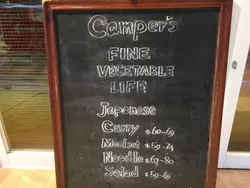 Camper's
FINE
VEGETABLE
LIFE
Japanese
Curry $60~69
$59~74
Noodle $69~80
Salad $59~69